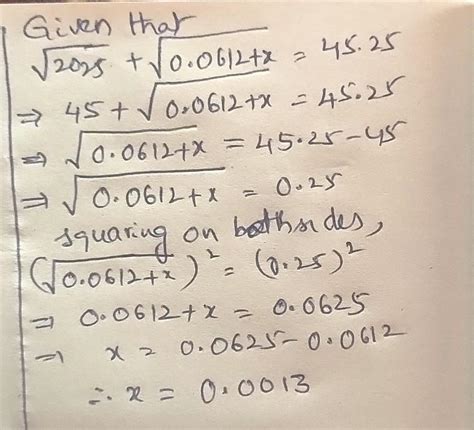 Given that
√2025 + √0.0612+x = 45.25
⇒ 45 + √0.0612+x = 45.25
⇒ √0.0612+x = 45.25-45
⇒ √0.0612+x = 0.25
squaring on bothsides,
(√0.0612+x)² = (0.25)²
⇒ 0.0612+x = 0.0625
⇒ x = 0.0625-0.0612
∴ x = 0.0013